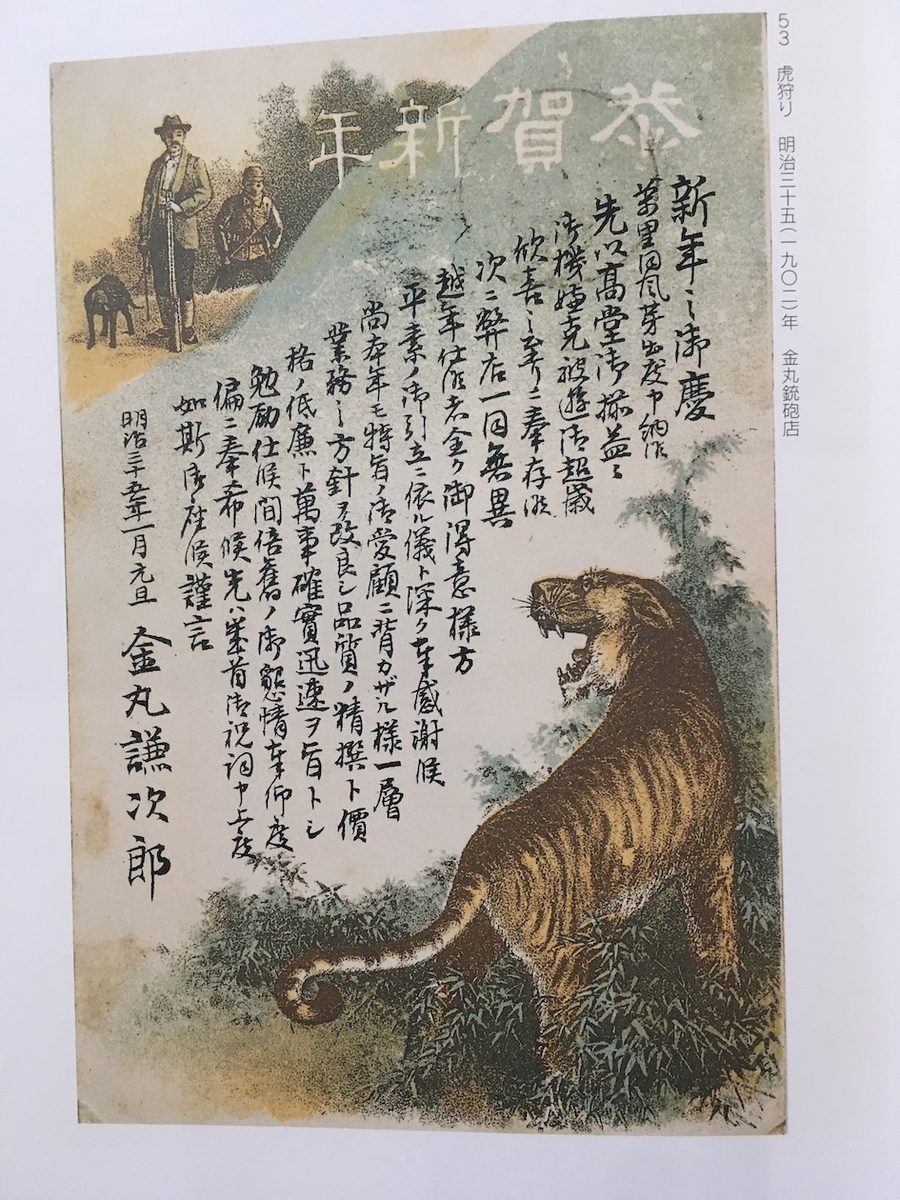 53 虎狩り 明治三十五(一九〇二)年 金丸銃砲店
恭賀新年
新年之御慶
萬里同風芽出度申納候
先以高堂御揃益々
御機嫌克被遊御超歳
欣喜之至りニ奉存候
次ニ弊店一同無異
越年仕候者全ク御得意様方
平素ノ御引立ニ依ル儀ト深ク奉感謝候
尚本年モ特旨ノ御愛顧ニ背カザル様一層
業務之方針ヲ改良シ品質ノ精撰ト價
格ノ低廉ト萬事確實迅速ヲ旨トシ
勉励仕候間倍舊ノ御懇情奉仰度
偏ニ奉希候先ハ歳首御祝詞申上度
如斯御座候謹言
明治三十五年一月元旦 金丸謙次郎